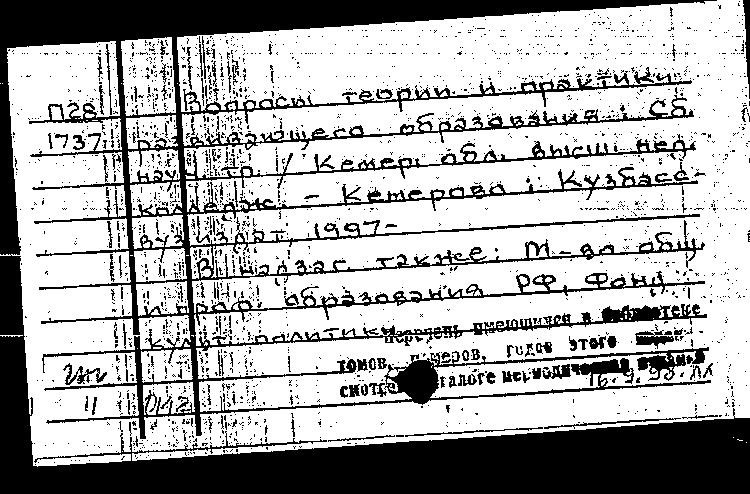 П28 Вопросы теории и практики
1737 развивающего образования : Сб.
науч. тр. / Кемер. обл. высш. пед.
колледж. - Кемерово : Кузбасс-
вузиздат, 1997-
В надзаг. также: М-во общ.
и проф. образования РФ, Фонд
культ. политики
Перечень имеющихся в библиотеке
томов, номеров, годов этого
смотри каталоге периодических
11